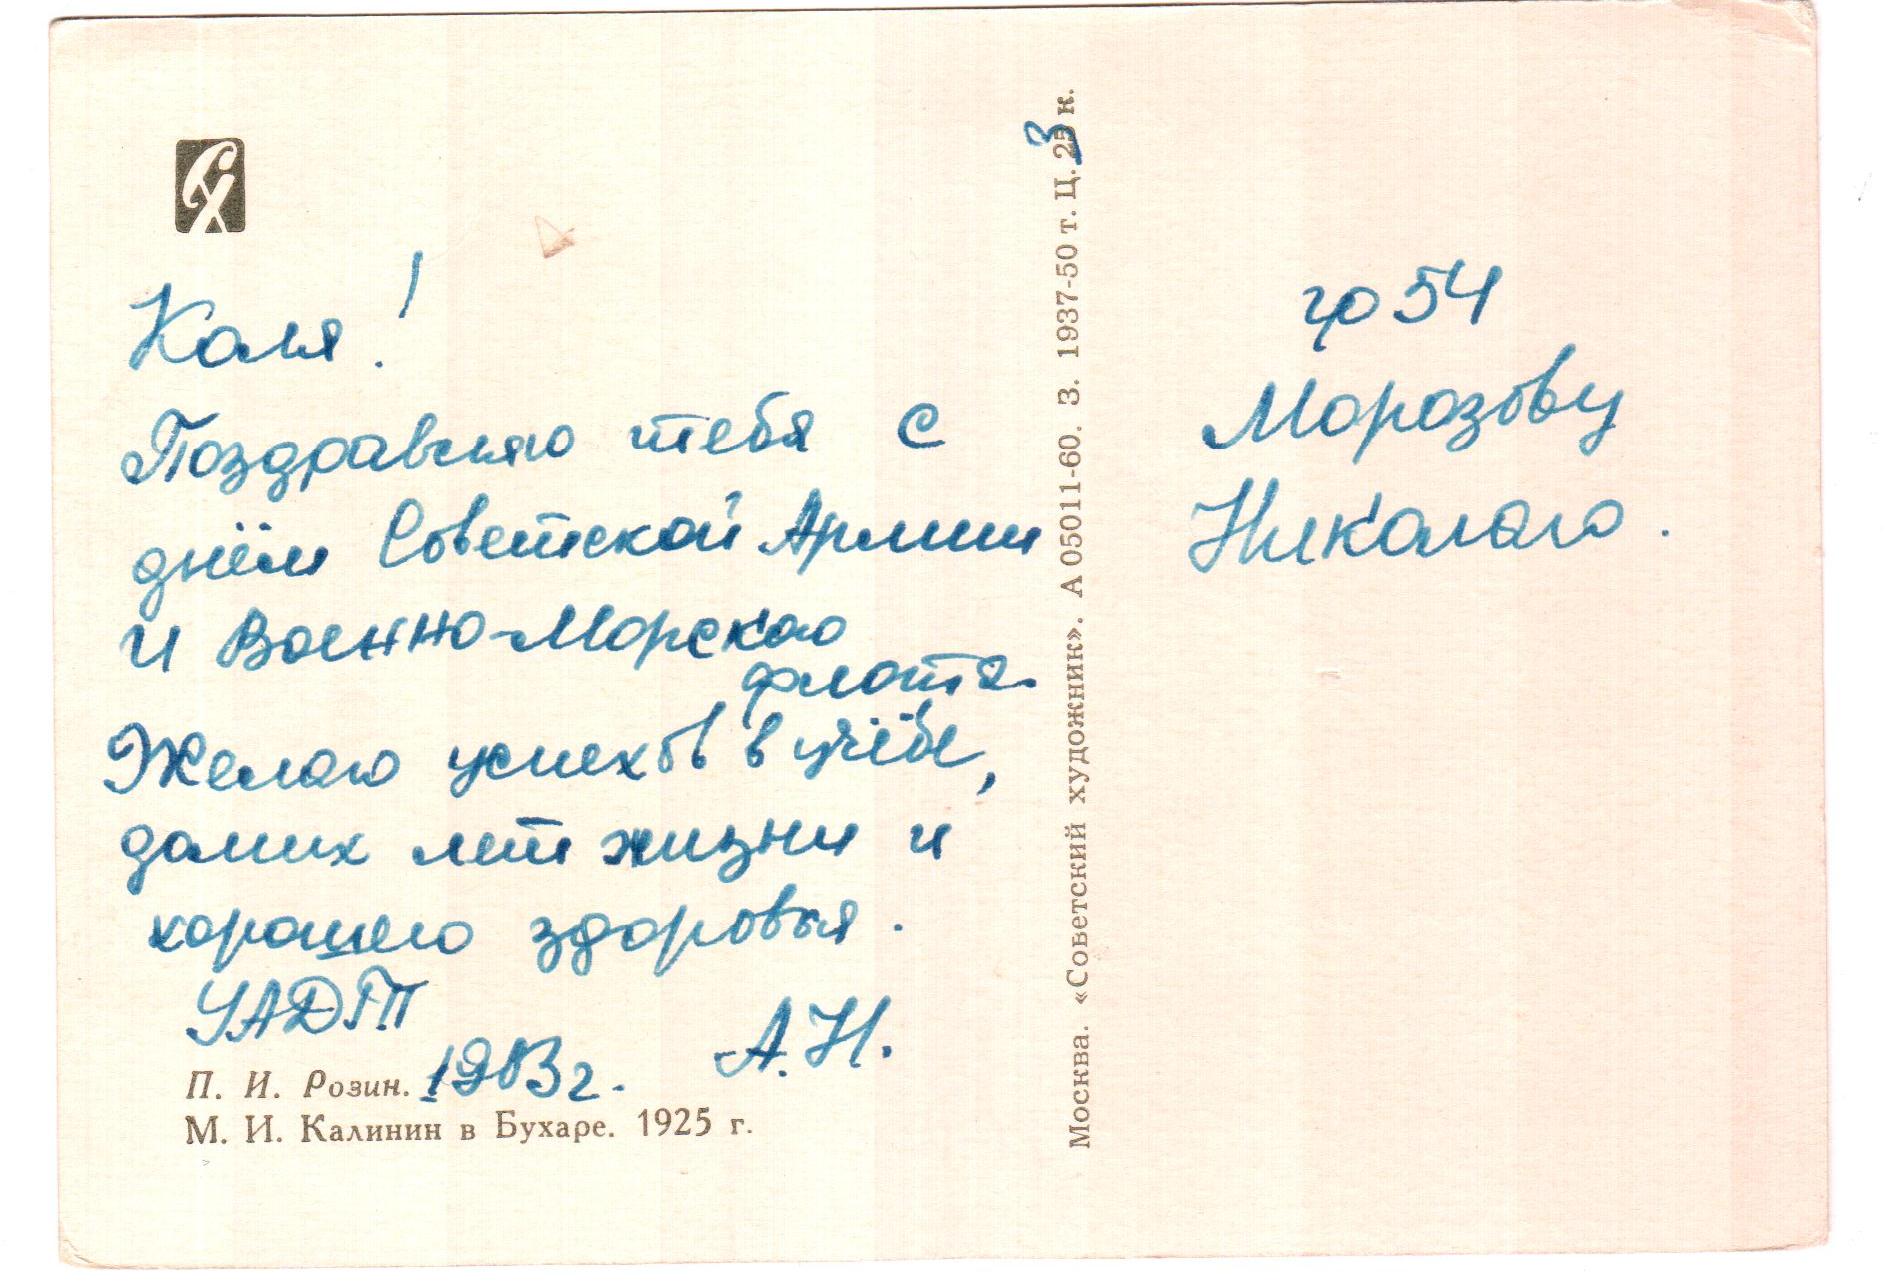 Коля!
Поздравляю тебя с
днём Советской Армии
и Военно-Морского
флота.
Желаю успехов в учёбе,
долгих лет жизни и
хорошего здоровья.
УАДТП
1983 г. А.Н.
П. И. Розин.
М. И. Калинин в Бухаре. 1925 г.
Москва. «Советский художник». А 05011-60. З. 1937-50 т. Ц. 25 к.
3
гр 54
Морозову
Николаю.